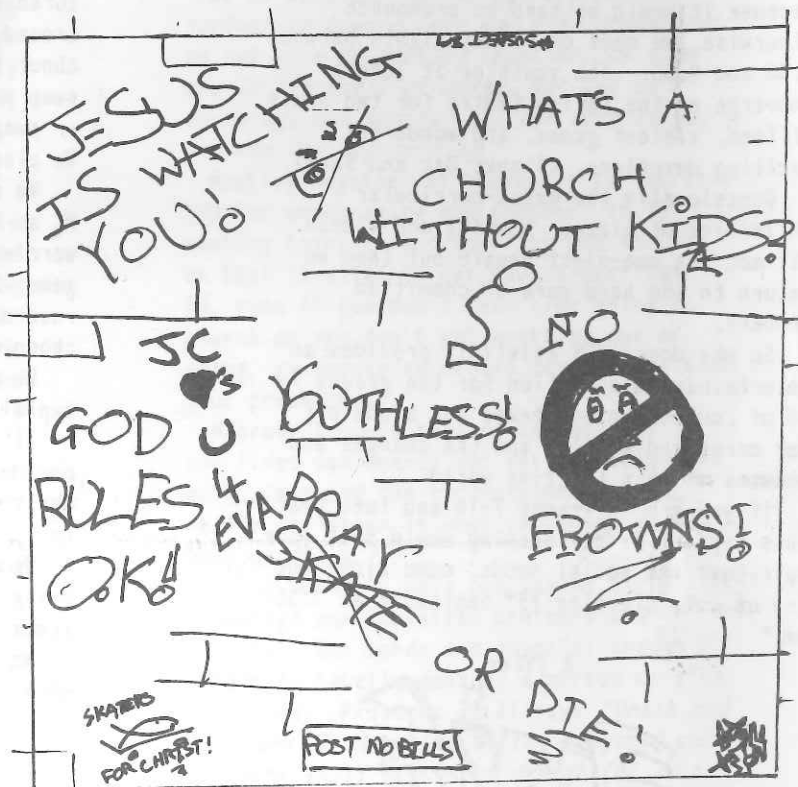 JESUS
IS WATCHING
YOU!
WHAT'S A
CHURCH
WITHOUT KIDS?
YOUTHLESS!
JC
♥'s
U
4
EVA
GOD
RULES
O.K!
NO
FROWNS!
PRAY
OR
DIE!
SKATERS
FOR CHRIST!
POST NO BILLS